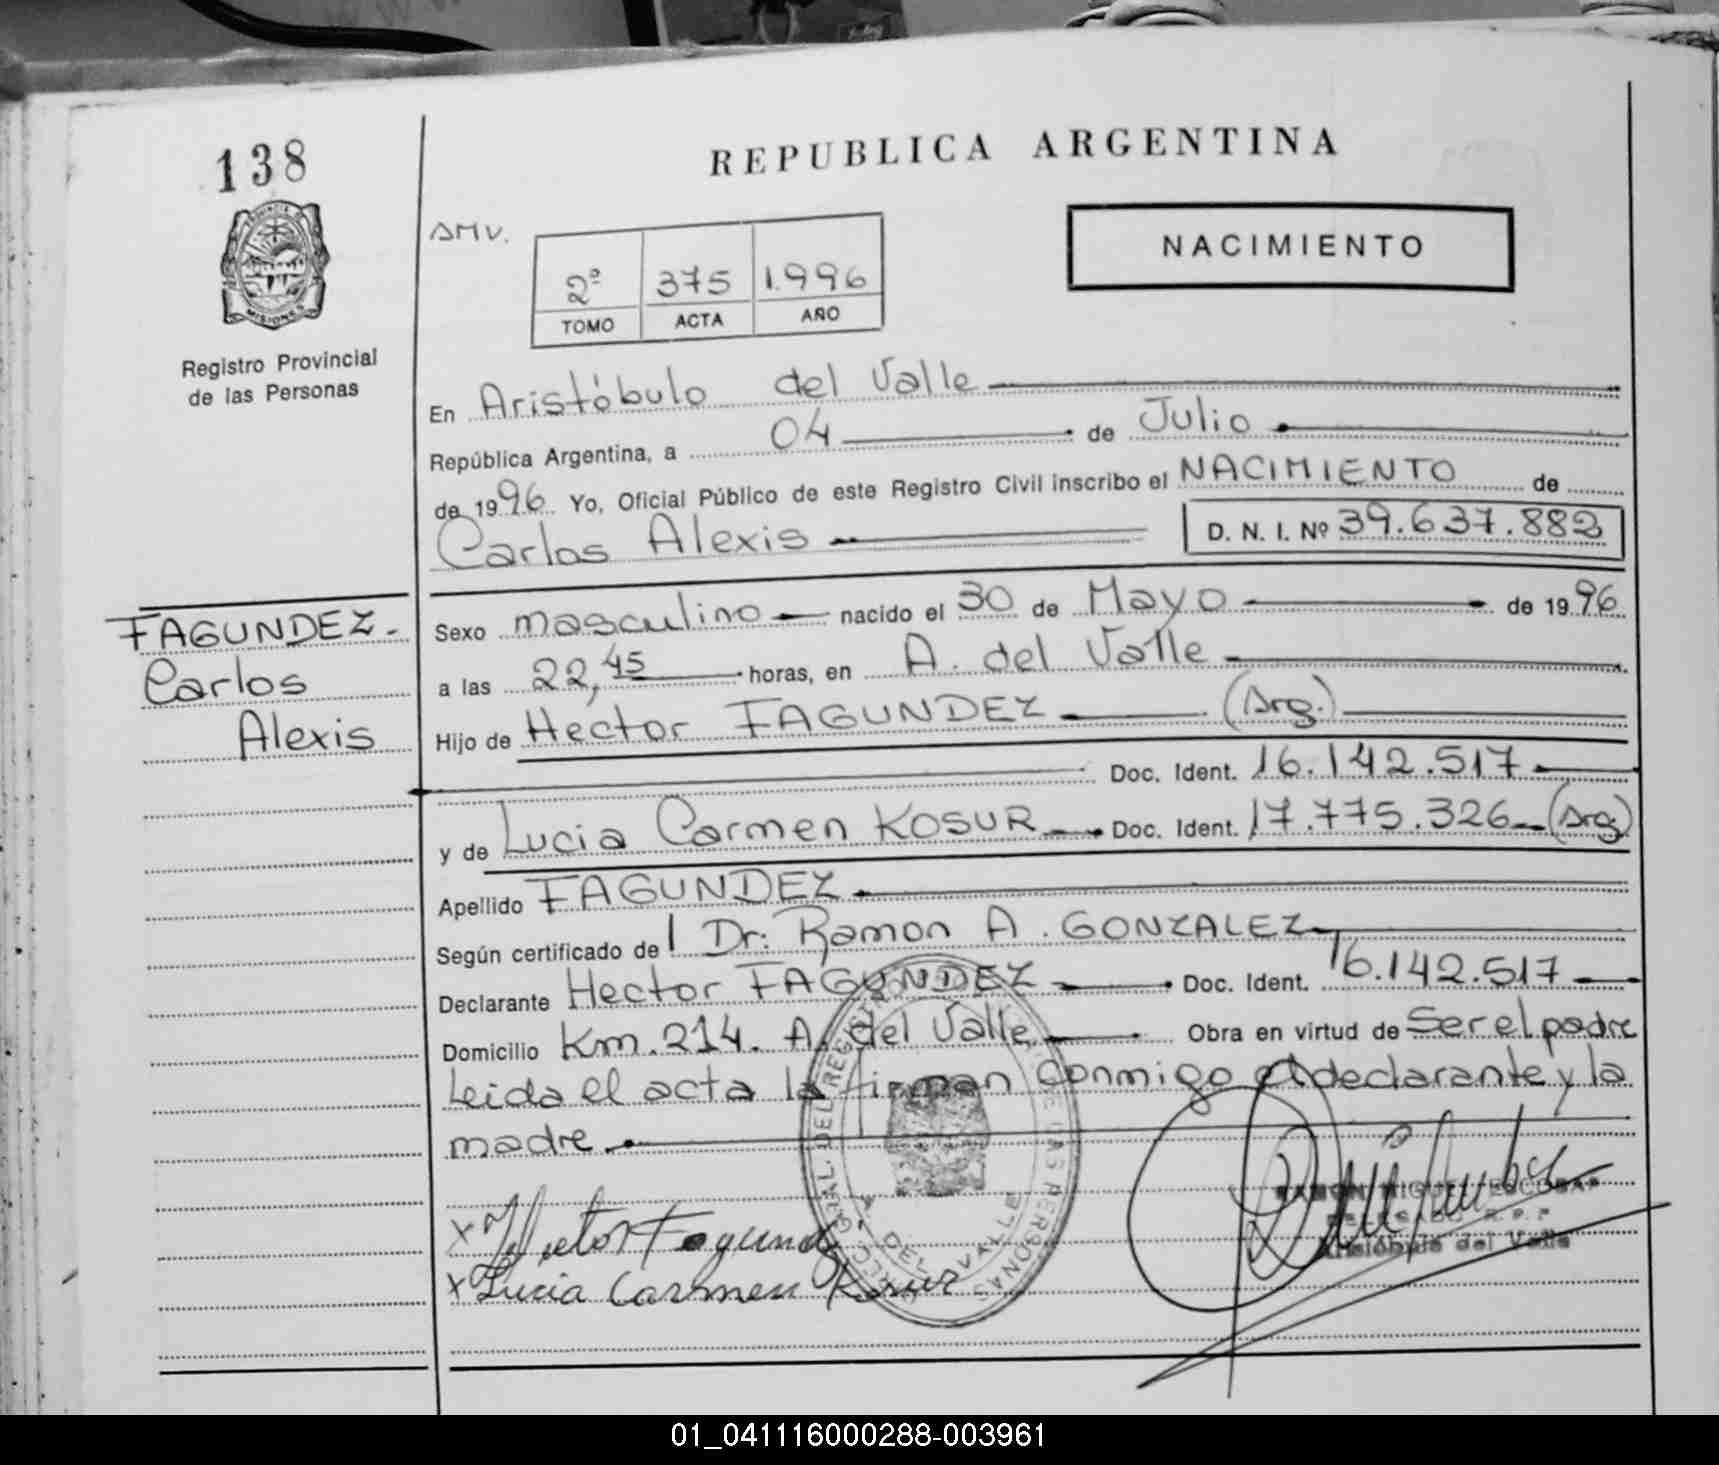 138
REPUBLICA ARGENTINA
AMV.
2º 375 1.996
TOMO ACTA AÑO
NACIMIENTO
PROVINCIA D
MISIONES
Registro Provincial
de las Personas
En Aristóbulo del Valle
República Argentina, a 04 de Julio
de 1996 Yo, Oficial Público de este Registro Civil inscribo el NACIMIENTO de
Carlos Alexis D. N. I. Nº 39.637.882
FAGUNDEZ.
Carlos
Alexis
Sexo masculino nacido el 30 de Mayo de 1996
a las 22,45 horas, en A. del Valle
Hijo de Hector FAGUNDEZ (Arg.)
Doc. Ident. 16.142.517
y de Lucia Carmen KOSUR Doc. Ident. 17.775.326 (Arg)
Apellido FAGUNDEZ
Según certificado de Dr. Ramon A. GONZALEZ
Declarante Hector FAGUNDEZ Doc. Ident. 16.142.517
Domicilio Km. 214. A. del Valle Obra en virtud de Ser el padre
Leida el acta la firman conmigo el declarante y la
madre.
x Hector Fagunde
x Lucia Carmen Kosur
A. DEL VALLE
RAMON MIGUEL ESCOBAR
DELEGADO R.P.P
Aristóbulo del Valle
01_041116000288-003961